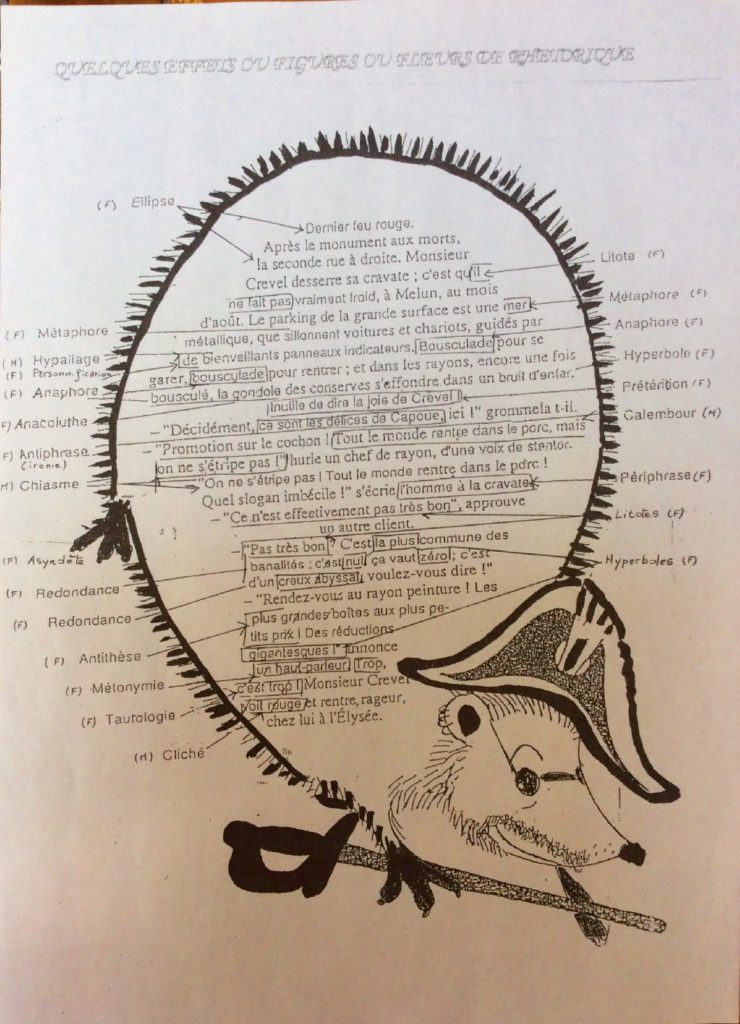 QUELQUES EFFETS OU FIGURES OU FLEURS DE RHETORIQUE
(F) Ellipse
Dernier feu rouge.
Après le monument aux morts,
la seconde rue à droite. Monsieur
Crevel desserre sa cravate ; c'est qu'il
ne fait pas vraiment froid, à Melun, au mois
d'août. Le parking de la grande surface est une mer
métallique, que sillonnent voitures et chariots, guidés par
de bienveillants panneaux indicateurs. Bousculade pour se
garer, bousculade pour rentrer ; et dans les rayons, encore une fois
bousculé, la gondole des conserves s'effondre dans un bruit d'enfer.
Inutile de dire la joie de Crevel !
– "Décidément, ce sont les délices de Capoue, ici !" grommela t-il.
– "Promotion sur le cochon ! Tout le monde rentre dans le porc, mais
on ne s'étripe pas !" hurle un chef de rayon, d'une voix de stentor.
– "On ne s'étripe pas ! Tout le monde rentre dans le porc !
Quel slogan imbécile !" s'écrie l'homme à la cravate.
– "Ce n'est effectivement pas très bon", approuve
un autre client.
– "Pas très bon ? C'est la plus commune des
banalités ; c'est nul, ça vaut zéro ; c'est
d'un creux abyssal, voulez-vous dire !"
– "Rendez-vous au rayon peinture ! Les
plus grandes boîtes aux plus pe-
tits prix ! Des réductions
gigantesques !" annonce
un haut-parleur. Trop,
c'est trop ! Monsieur Crevel
voit rouge et rentre, rageur,
chez lui à l'Élysée.
(F) Métaphore
(H) Hypallage
(F) Personnification
(F) Anaphore
(F) Anacoluthe
(F) Antiphrase
(ironie)
(H) Chiasme
(F) Asyndète
(F) Redondance
(F) Redondance
(F) Antithèse
(F) Métonymie
(F) Tautologie
(H) Cliché
Litote (F)
Métaphore (F)
Anaphore (F)
Hyperbole (F)
Prétérition (F)
Calembour (H)
Périphrase (F)
Litotes (F)
Hyperboles (F)